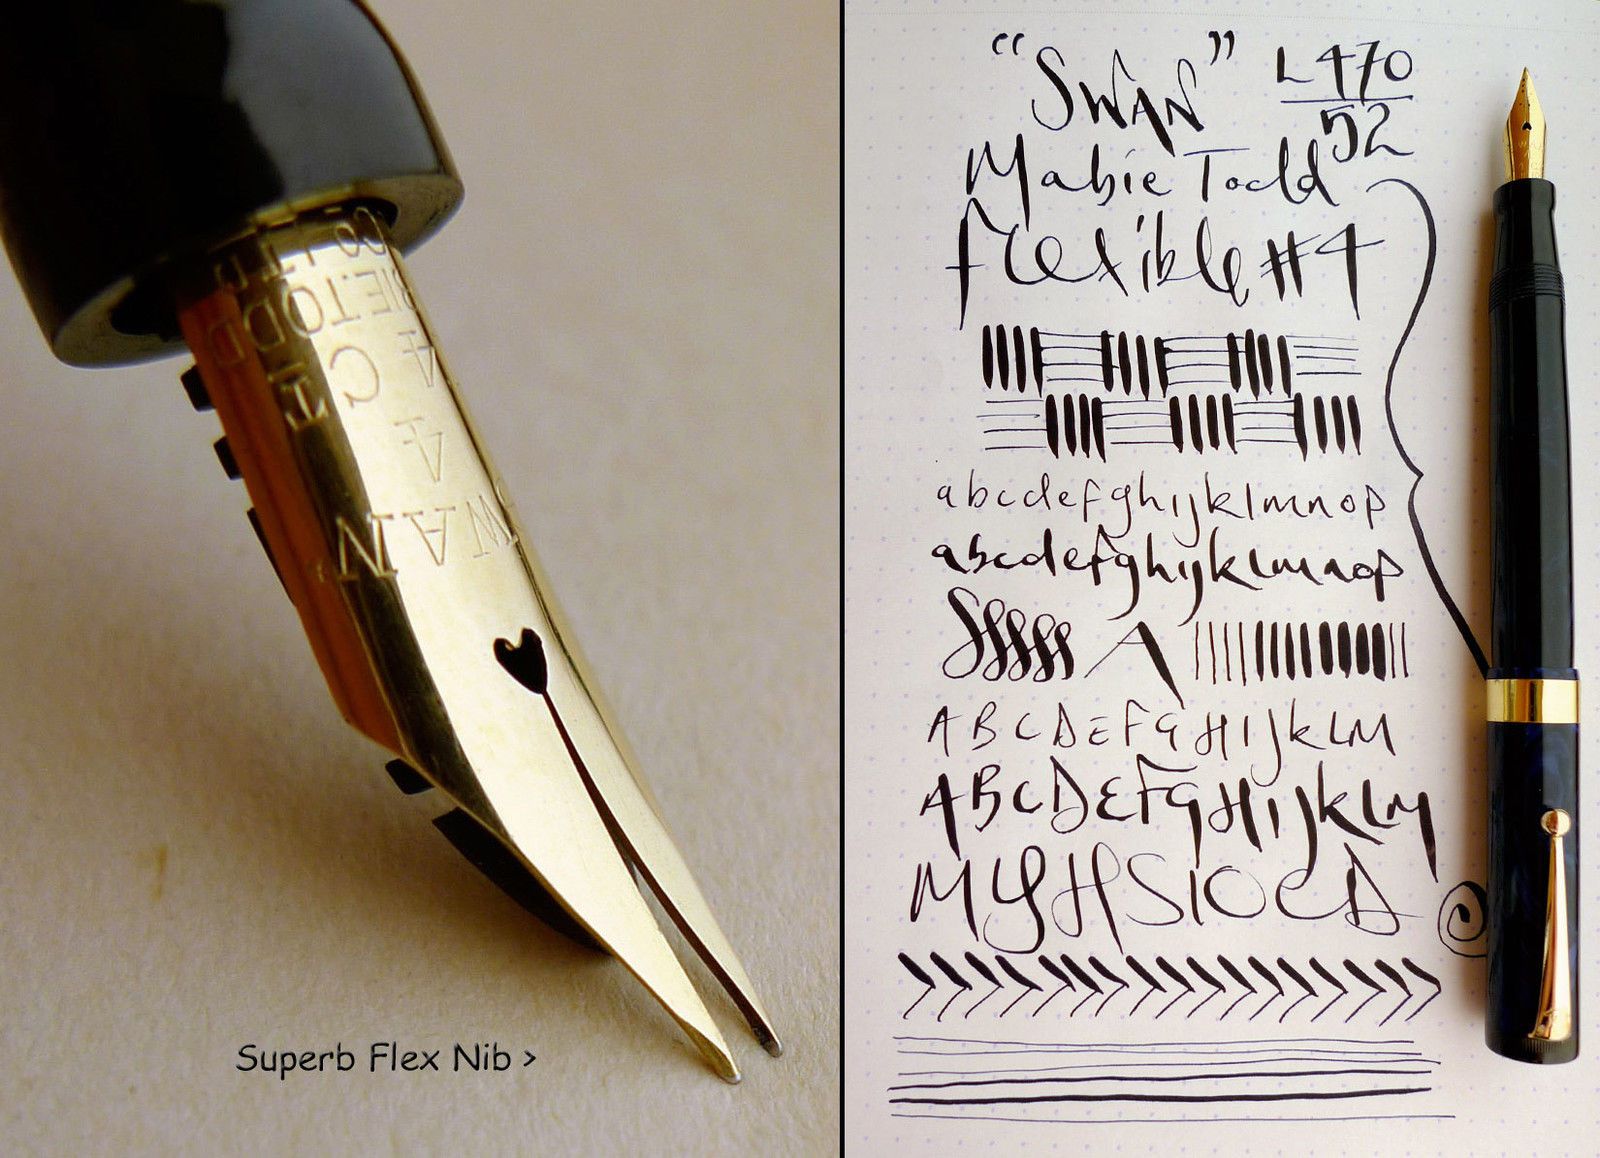 CO LTD
BIE.TODD
14 CT
4
SWAN.
Superb Flex Nib >
"SWAN" L470
52
Mabie Todd
Flexible #4
abcdefghijklmnop
abcdefghijklmnop
A
ABCDEFGHIJKLM
ABCDEFGHIJKLM
MYHSIOCD